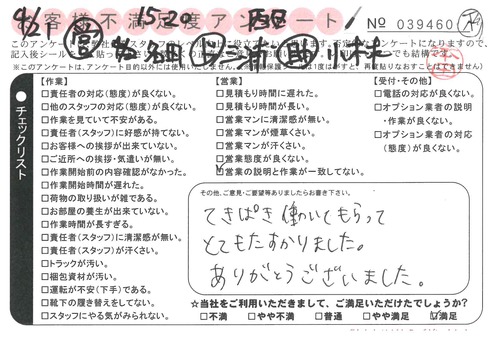 お客様不満足度アンケート
No 039460
4/21 営 15:20 西
石田 三浦 小林
※このアンケートは、アンケート目的以外には使用いたしません。
チェックリスト
【作業】
□責任者の対応(態度)が良くない。
□他のスタッフの対応(態度)が良くない。
□作業を見ていて不安がある。
□責任者(スタッフ)に好感が持てない。
□お客様への挨拶が出来ていない。
□ご近所への挨拶・気遣いが無い。
□作業開始前の内容確認がなかった。
□作業開始時間が遅れた。
□荷物の取り扱いが雑である。
□お部屋の養生が出来ていない。
□作業時間が長すぎる。
□責任者(スタッフ)に清潔感が無い。
□責任者(スタッフ)が汗くさい。
□トラックが汚い。
□梱包資材が汚い。
□運転が不安(下手)である。
□靴下の履き替えをしてない。
□スタッフにやる気がみられない。
【営業】
□見積もり時間に遅れた。
□見積もり時間が長い。
□営業マンに清潔感が無い。
□営業マンが煙草くさい。
□営業マンが汗くさい。
□営業態度が良くない。
☑営業の説明と作業が一致してない。
【受付・その他】
□電話の対応が良くない。
□オプション業者の説明
・作業が良くない。
□オプション業者の対応
(態度)が良くない。
その他、ご意見・ご要望等ありましたらお書き下さい。
てきぱき働いてもらって
とてもたすかりました。
ありがとうございました。
☆当社をご利用いただきまして、ご満足いただけたでしょうか?
□不満 □やや不満 □普通 □やや満足 ☑満足